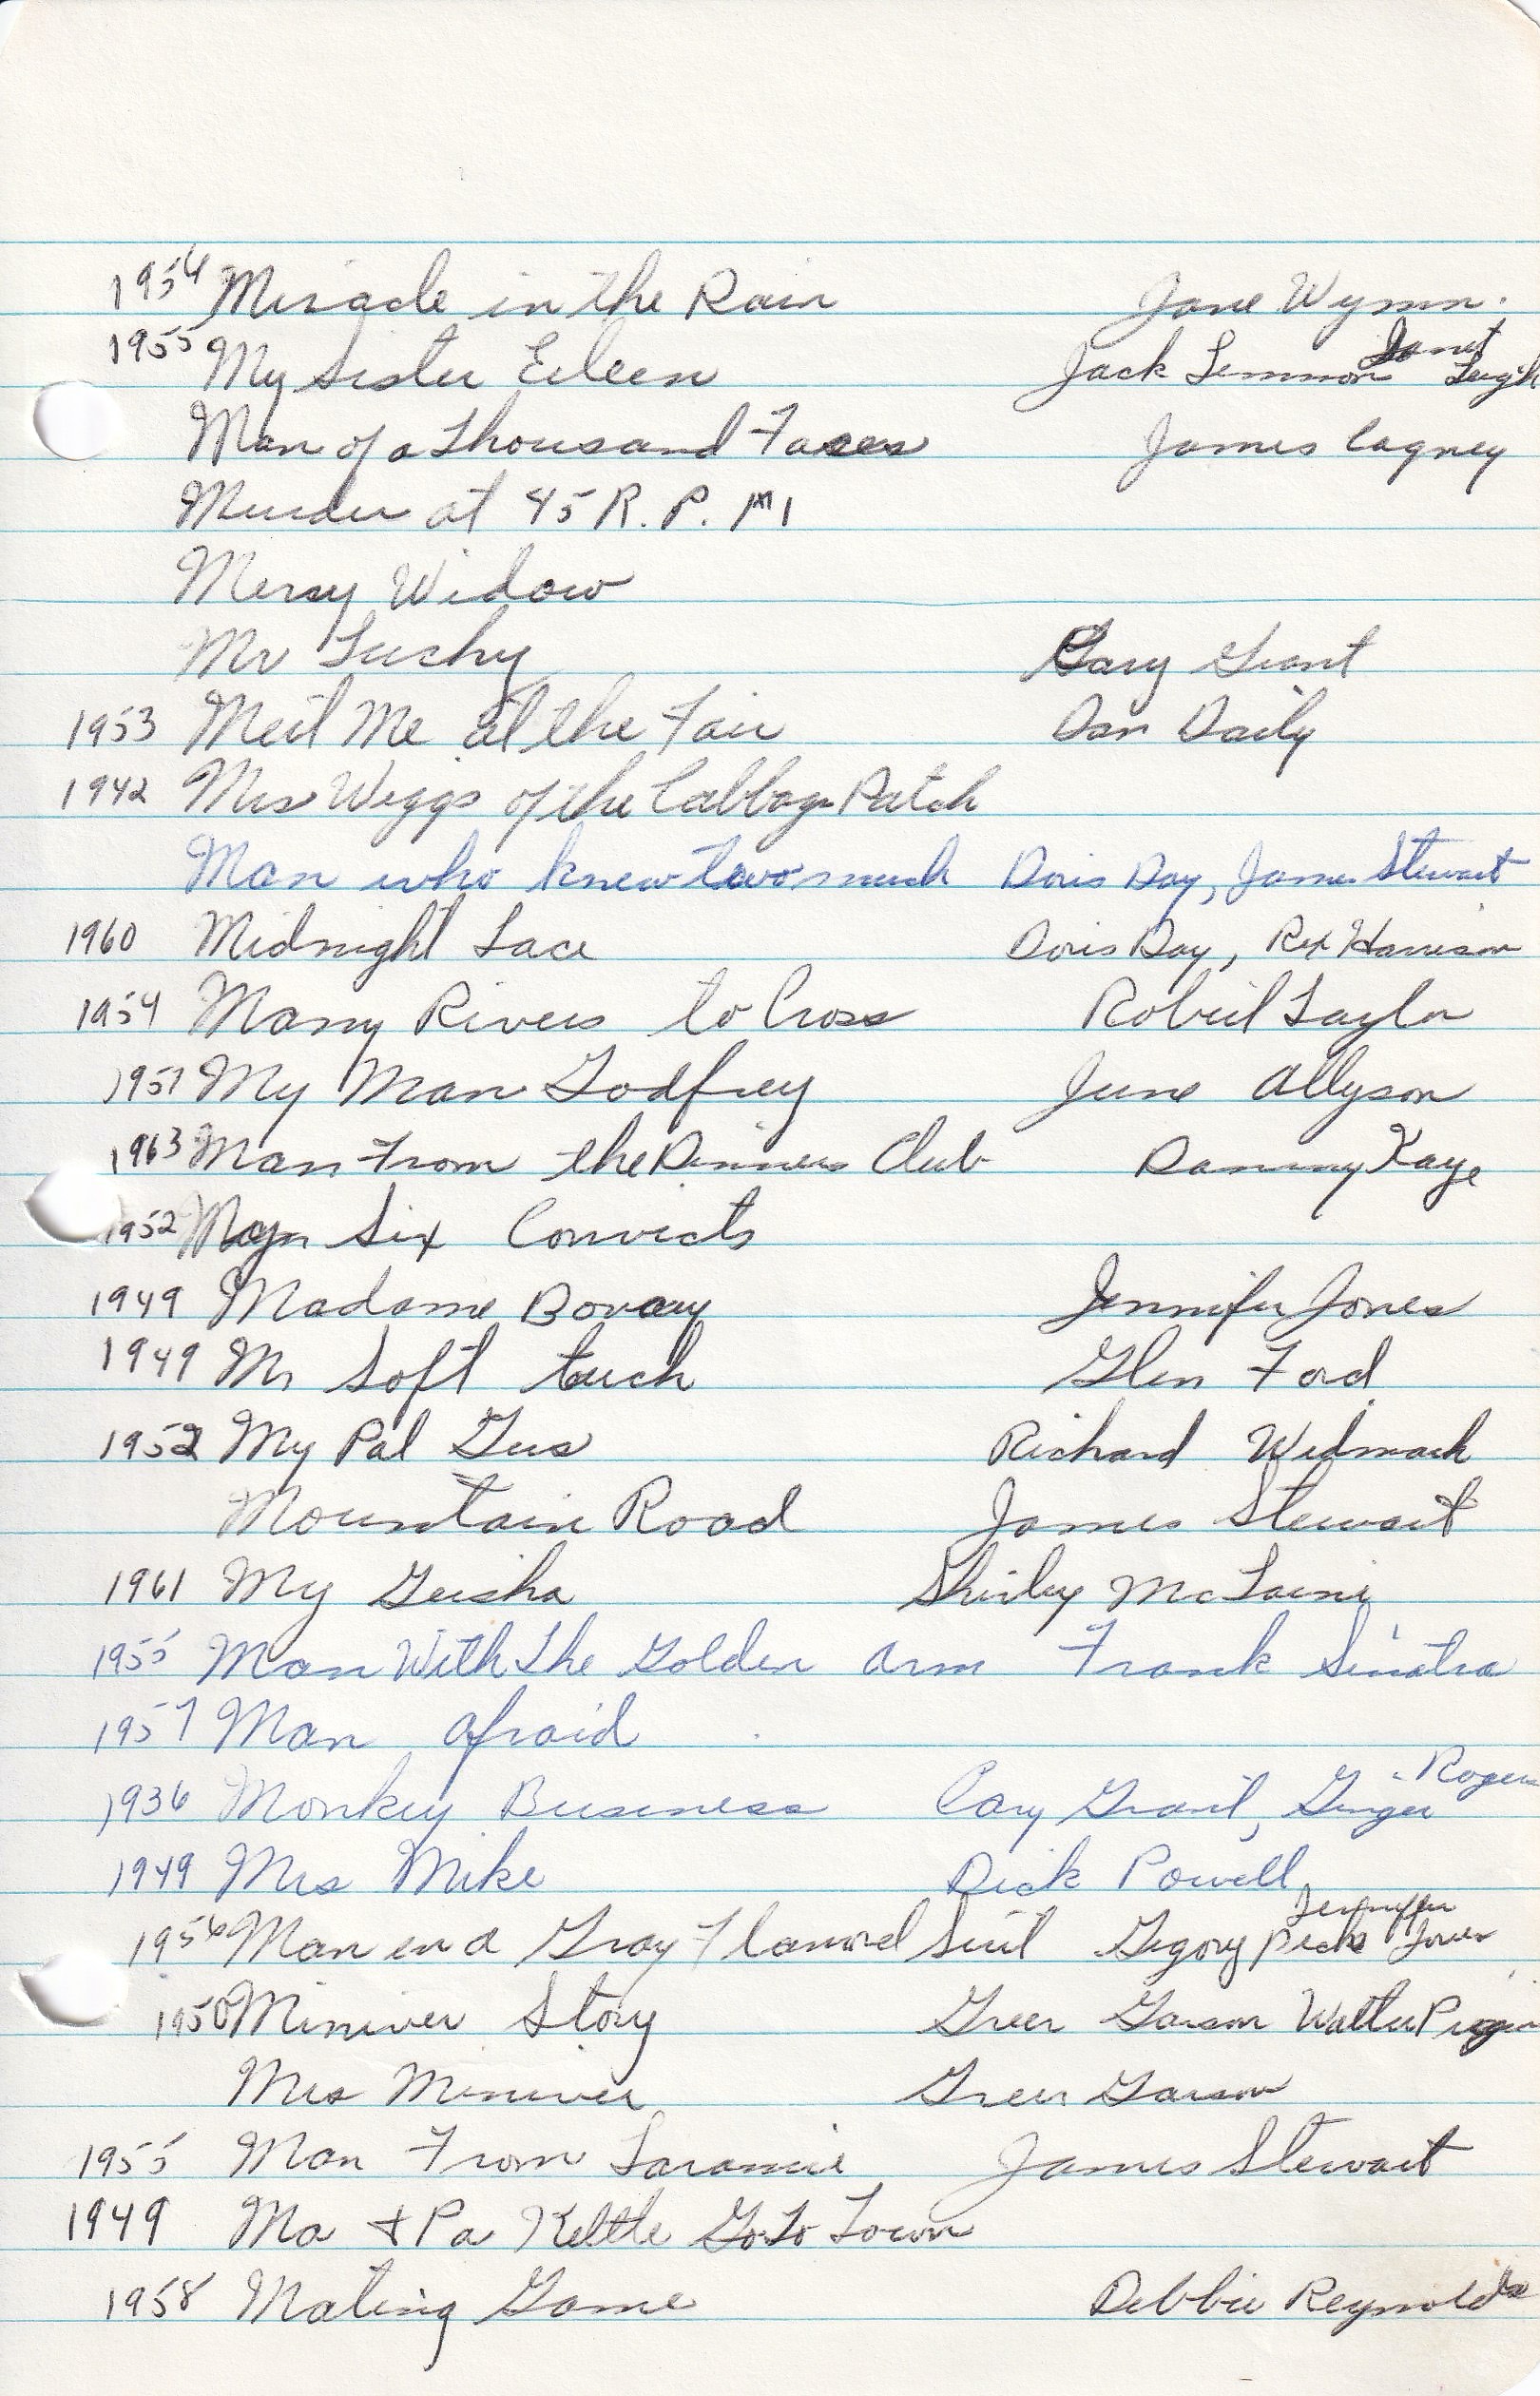 1956 Miracle in the Rain Jane Wymn.
1955 My Sister Eileen Jack Lemmon Janet Leigh
Man of a Thousand Faces James Cagney
Murder at 45 R.P.M
Merry Widow
Mr Luchy Cary Grant
1953 Meet Me at the Fair Dan Daily
1942 Mrs Wiggs of the Cabbage Patch
Man who knew two much Doris Day, James Stewart
1960 Midnight Lace Doris Day, Rex Harrison
1954 Many Rivers to Cross Robert Taylor
1957 My Man Godfrey June Allyson
1963 Man From the Dinners Club Danny Kaye
1952 My Six Convicts
1949 Madame Bovary Jennifer Jones
1949 Mr Soft touch Glen Ford
1952 My Pal Gus Richard Widmark
Mountain Road James Stewart
1961 My Geisha Shirley McLaine
1955 Man With the Golden Arm Frank Sinatra
1957 Man Afraid
1936 Monkey Business Cary Grant, Ginger Rogers
1949 Mrs Mike Dick Powell
1956 Man in a Gray Flannel Suit Gregory Peck Jennifer Jones
1950 Miniver Story Greer Garson Walter
Mrs Miniver Greer Garson
1955 Man From Laramie James Stewart
1949 Ma + Pa Kettle Go To Town
1958 Mating Game Debbie Reynolds